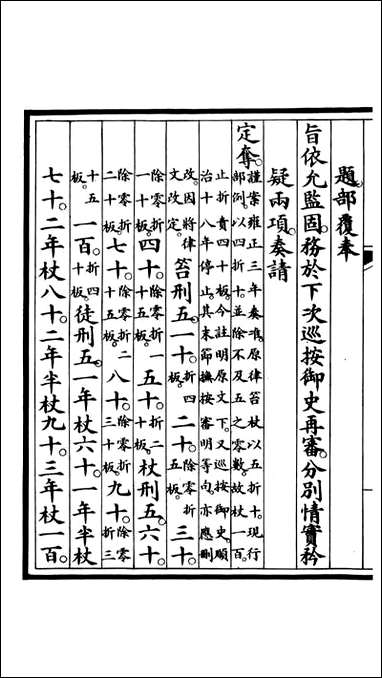 題部覆奉
旨依允監固。務於下次巡按御史再審。分別情實矜
疑兩項。奏請
定奪。謹案雍正三年奏准。原律笞杖以五折十。現行部例。以四折十。並除不及五之零數。故杖一百。
止折責四十板。今註明原文下。又巡按御史。順治十八年停止。其末節撫按審明等句。亦應刪
改。因將律文改定。笞刑五。一十。折四板。二十。除零折五板。三十。
除零折一十板。四十。除零折一十五板。五十。折二十板。杖刑五。六十。
除零折二十板。七十。除零折二十五板。八十。除零折三十板。九十。除零折三
十五板。一百。折四十板。徒刑五。一年杖六十。一年半杖
七十。二年杖八十。二年半杖九十。三年杖一百。